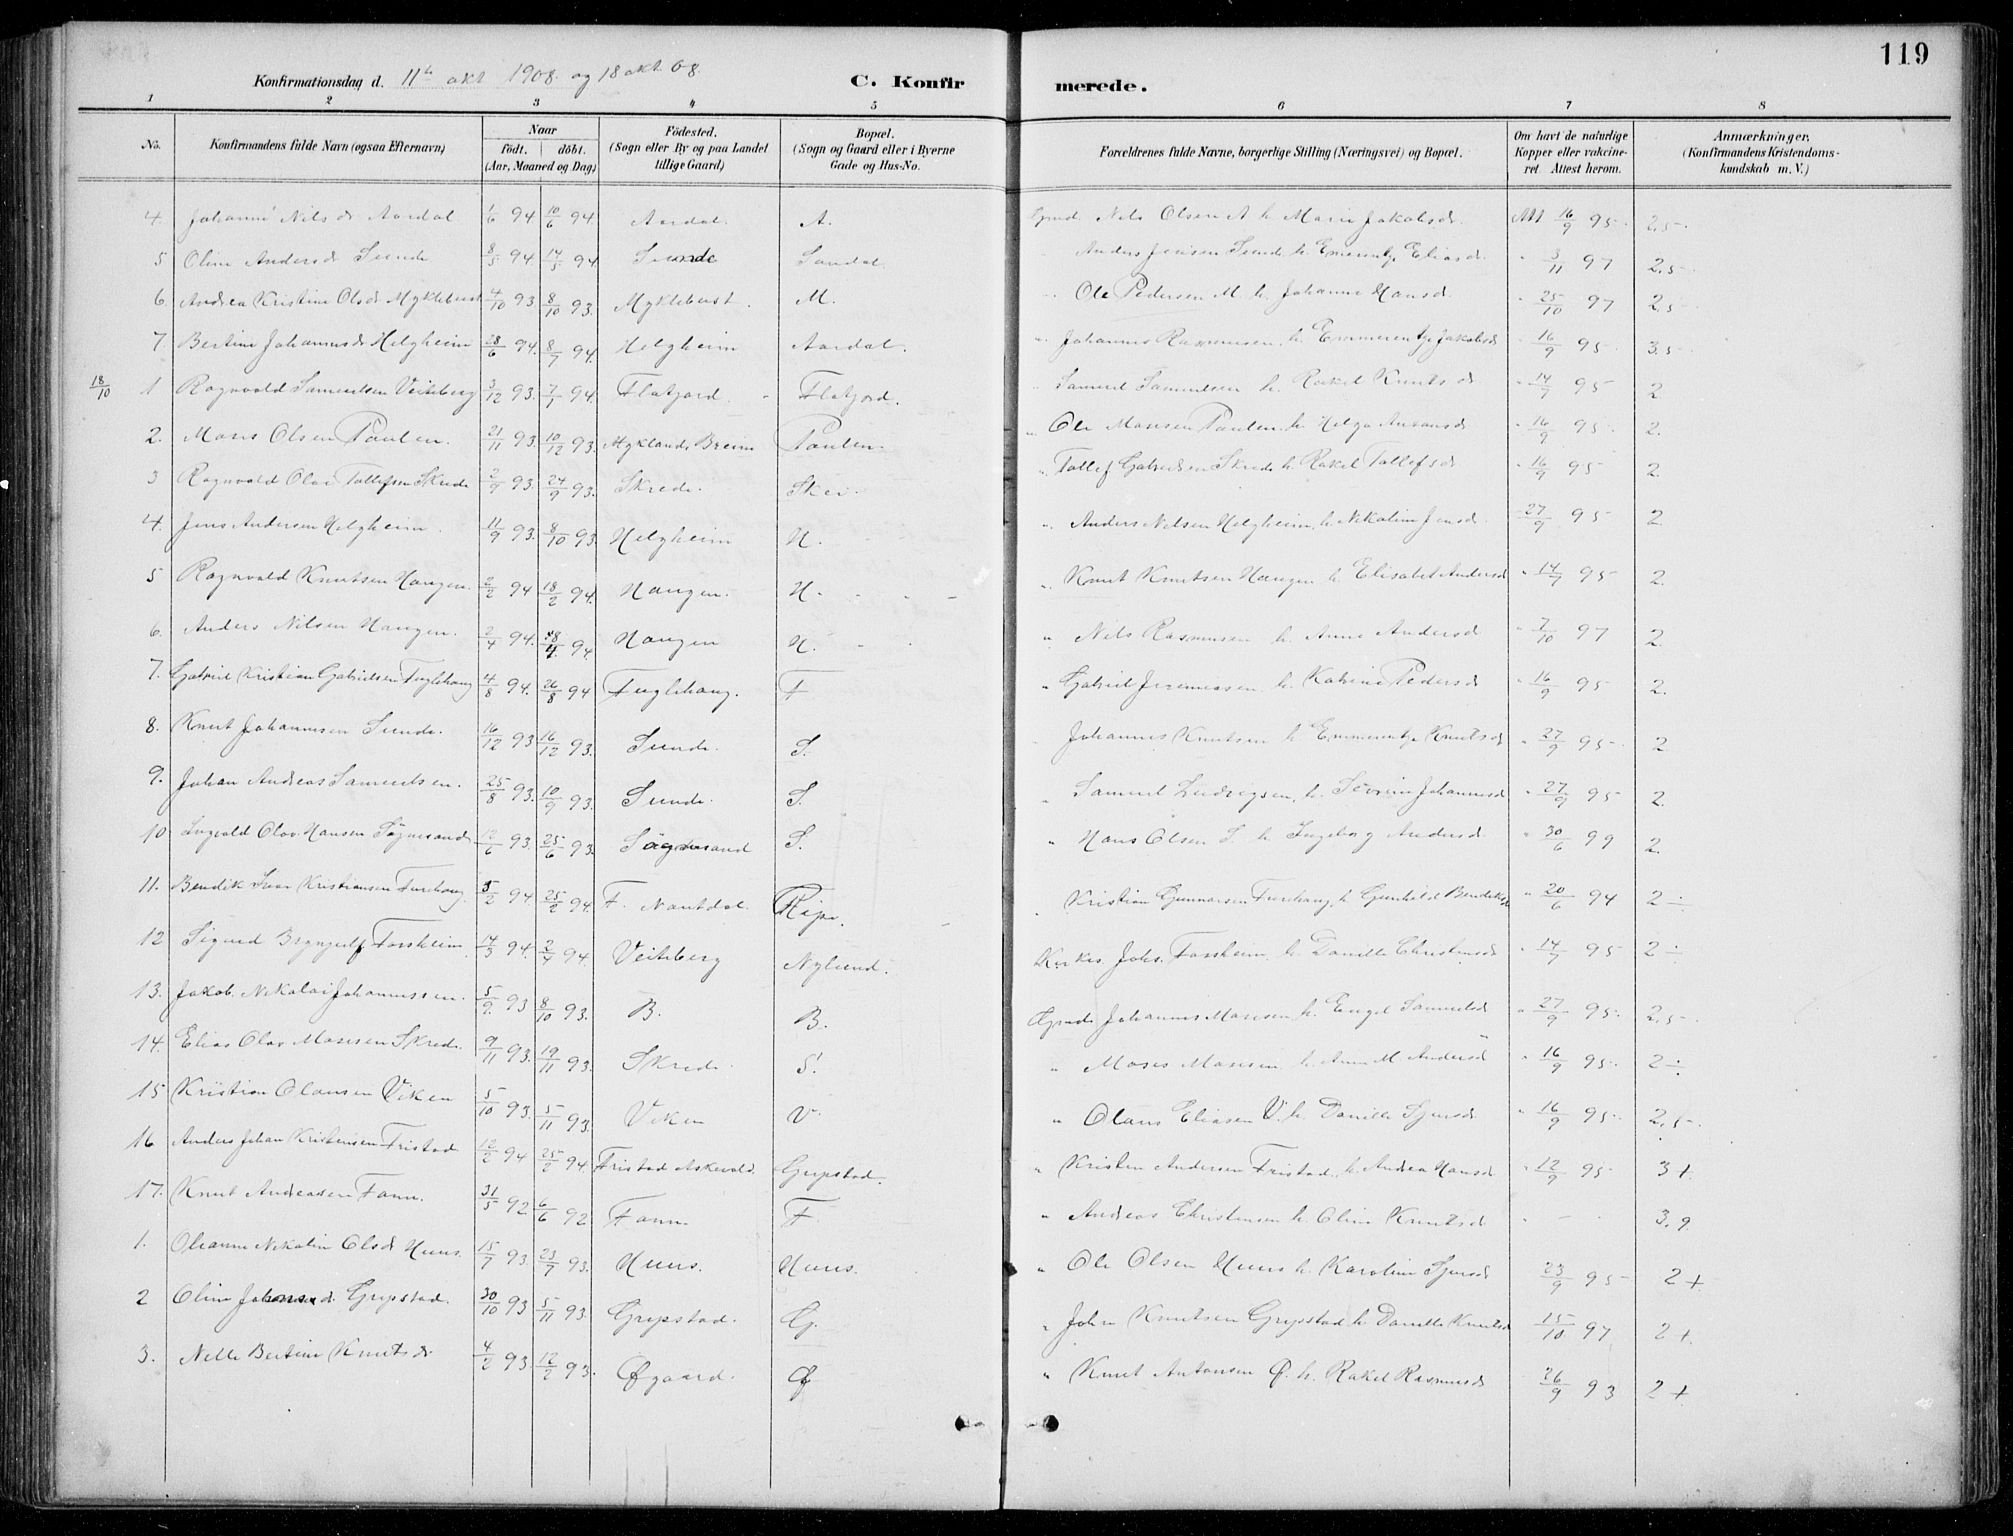 119
Konfirmationsdag d. 11te okt 1908. og 18 okt. 08.
C. Konfirmerede.
1 2 3 4 5 6 7 8
No. Konfirmandens fulde Navn (ogsaa Efternavn) Naar født. døbt. (Aar, Maaned og Dag) Fødested. (Sogn eller By og paa Landet tillige Gaard) Bopæl. (Sogn og Gaard eller i Byerne Gade og Hus-No. Forældrenes fulde Navne, borgerlige Stilling (Næringsvei) og Bopæl. Om havt de naturlige Kopper eller vakcineret. Attest herom. Anmærkninger. (Konfirmandens Kristendomskundskab m. V.)
4. Johanne Nilsdr Aardal 1/6 94 10/6 94. Aardal. A. Gmd. Nils Olsen A h. Marie Jakobsdr. 16/9 95. 2,5.
5 Oline Andersdr Sunde 8/5 94 14/5 94 Sunde Sandal " Anders Jensen Sunde h. Emerentze Eliasdr. " 3/11 97 2,5
6. Andrea Kristine Olsdr Myklebust 4/10 93 8/10 93. Myklebust. M. " Ole Pedersen M h. Johanne Hansdr. " 25/10 97 2,5
7. Bertine Johannesdr Helgheim 28/6 94. 8/7 94. Helgheim Aardal. " Johannes Rasmussen h. Emmerentze Jakobsdr " 16/9 95. 3.5
18/10 1 Ragnvald Samuelsen Veiteberg 3/12 93. 7/1 94. Flatjord. Flatjord. " Samuel Samuelsen h. Rakel Knutsdr " 14/7 95 2
2. Mons Olsen Paulen. 21/11 93. 10/12 93. Myklands Breim Paulen. " Ole Monsen Paulen h. Helga Antonsdr " 16/9 95. 2.
3 Ragnvald Olai Tollefsen Skrede 2/9 93. 24/9 93. Skrede. Skei. " Tollef Gabrielsen Skrede h. Rakel Tollefsdr " 16/9 95 2.
4. Jens Andersen Helgheim. 11/9 93. 8/10 93. Helgheim H. " Anders Nilsen Helgheim, h. Nikoline Jensdr. 27/9 95 2.
5 Ragnvald Knutsen Haugen. 2/2 94 18/2 94. Haugen. H. " Knut Knutsen Haugen h. Elisabet Andersdr " 14/7 95 2.
6. Anders Nilsen Haugen. 2/4 94. 8/4 94. Haugen H. " Nils Rasmussen h. Anne Andersdr " 7/10 97 2.
7. Gabriel Kristian Gabrielsen Fuglehaug 4/8 94. 26/8 94 Fuglehaug. F " Gabriel Jeremiassen h. Katrine Pedersdr " 16/9 95 2.
8. Knut Johannesen Sunde. 16/12 93 16/12 93. Sunde. S. Johannes Knutsen h. Emmerentze Knutsdr " 27/9 95. 2
9. Johan Andreas Samuelsen. 25/8 93. 10/9 93. Sunde. S. " Samuel Ludvigsen, h. Sövrine Johannesdr " 27/9 95 2.
10 Ingvald Olav Hansen Sögnesand 12/6 93. 25/6 93. Sögnesand S. " Hans Olsen S. h. Ingeborg Andersdr " 30/6 99 2.
11. Bendik Ivar Kristiansen Furehaug. 5/2 94. 25/2 94. F. Naustdal. Ripe. " Kristian Gunnarsen Furehaug, h. Gunhild Bendiksdr " 20/6 94 2 ÷
12 Sigurd Brynjulf Forsheim. 14/3 94. 2/4 94. Veiteberg Nylund. Kirkes. Johs. Forsheim h. Danille Christensdr " 14/7 95 2 ÷
13. Jakob Nikolai Johannessen. 5/9. 93 8/10 93. B. B. Gmd. Johannes Monsen h. Engel Samuelsdr " 27/9 95. 2,5.
14. Elias Olav Mosesen Skrede. 9/11 93. 19/11 93. Skrede. S. " Moses Mosesen h. Anne M Andersdr " 16/9 95. 2 ÷
15 Kristian Olausen Viken 5/10 93. 5/11 93. Viken V. " Olaus Eliasen V. h. Danille Sjursdr " 16/9 95. 2,5.
16 Anders Johan Kristensen Fristad 12/2 94 25/2 94. Fristad Askevold. Grepstad. " Kristen Andersen Fristad, h. Andrea Hansdr " 12/9 95 3 +
17. Knut Andreasen Fonn. 31/5 92. 6/6 92 Fonn. F. " Andreas Christensen h. Oline Knutsdr " - - 3.9
1. Olianne Nikoline Olsdr Huus. 15/7 93. 23/7 93. Huus. Huus. " Ole Olsen Huus h. Karoline Sjursdr 23/9 95 2 +.
2 Oline Johansdr. Grepstad. 30/10 93 5/11 93. Grepstad. G. " Johan Knutsen Grepstad h. Danille Knutsdr 15/10 97. 2 +.
3. Nelle Bertine Knutsdr 4/2 93. 12/2 93. Øygaard. Ø " Knut Antonsen Ø. h. Rakel Rasmusdr 26/9 93 2 +